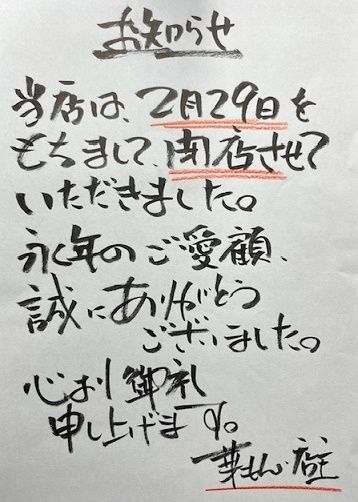 お知らせ
当店は、2月29日を
もちまして、閉店させて
いただきました。
永年のご愛顧、
誠にありがとう
ございました。
心より御礼
申し上げます。
華もん・店主